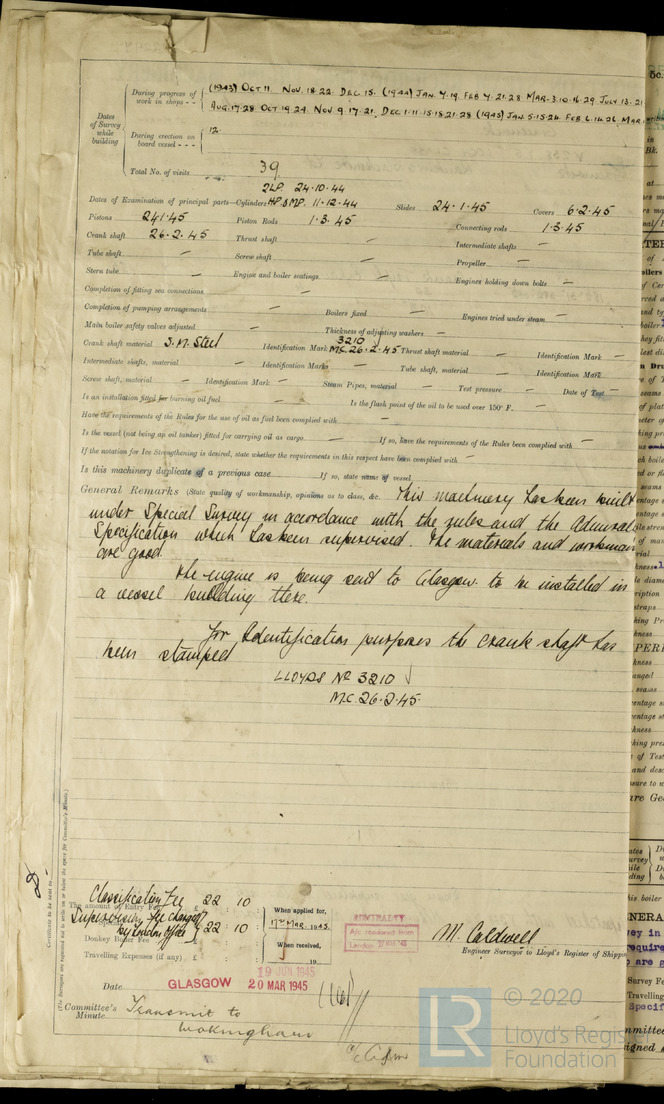 During progress of work in shops - - (1943) Oct 11. Nov. 18.22. Dec 15. (1944) Jan. 7.19. Feb 4.21.28 Mar. 3.10.16.29 July 13.21
Aug. 17.28. Oct 19.24. Nov 9.17.21. Dec 1.11.15.18.21.28 (1945) Jan. 5.15.24. Feb 6.14.26. Mar.
Dates of Survey while building
During erection on board vessel - - - 12.
Total No. of visits 39
2LP. 24.10.44
Dates of Examination of principal parts—Cylinders HP & MP. 11.12.44 Slides 24.1.45 Covers 6.2.45
Pistons 24.1.45 Piston Rods 1.3.45 Connecting rods 1.3.45
Crank shaft 26.2.45 Thrust shaft — Intermediate shafts —
Tube shaft — Screw shaft — Propeller —
Stern tube — Engine and boiler seatings — Engines holding down bolts —
Completion of fitting sea connections —
Completion of pumping arrangements — Boilers fixed — Engines tried under steam —
Main boiler safety valves adjusted — Thickness of adjusting washers —
Crank shaft material S.M. Steel Identification Mark 3210 M.C. 26.2.45 Thrust shaft material — Identification Mark —
Intermediate shafts, material — Identification Marks — Tube shaft, material — Identification Mark —
Screw shaft, material — Identification Mark — Steam Pipes, material — Test pressure — Date of Test —
Is an installation fitted for burning oil fuel — Is the flash point of the oil to be used over 150° F. —
Have the requirements of the Rules for the use of oil as fuel been complied with —
Is the vessel (not being an oil tanker) fitted for carrying oil as cargo — If so, have the requirements of the Rules been complied with —
If the notation for Ice Strengthening is desired, state whether the requirements in this respect have been complied with —
Is this machinery duplicate of a previous case — If so, state name of vessel
General Remarks (State quality of workmanship, opinions as to class, &c. This machinery has been built
under Special Survey in accordance with the rules and the Admiral
Specification which has been supervised. The materials and workman
are good.
The engine is being sent to Glasgow to be installed in
a vessel building there.
For Identification purposes the crank shaft has
been stamped
LLOYDS No 3210
M.C. 26.2.45.
Classification Fee £ 22 : 10
The amount of Entry Fee
Supervisory Fee charged by London Office £ 22 : 10
Donkey Boiler Fee £
Travelling Expenses (if any) £
When applied for, 17th Mar. 1945.
When received, 19
ADMIRALTY
A/c rendered from
London
M. Caldwell
Engineer Surveyor to Lloyd's Register of Shipping
19 JUN 1945
Date GLASGOW 20 MAR 1945
Committee's Minute Transmit to
Wokingham
Certificate to be sent to
(The Surveyors are requested not to write on or below the space for Committee's Minute.)
LR © 2020
Lloyd's Register
Foundation